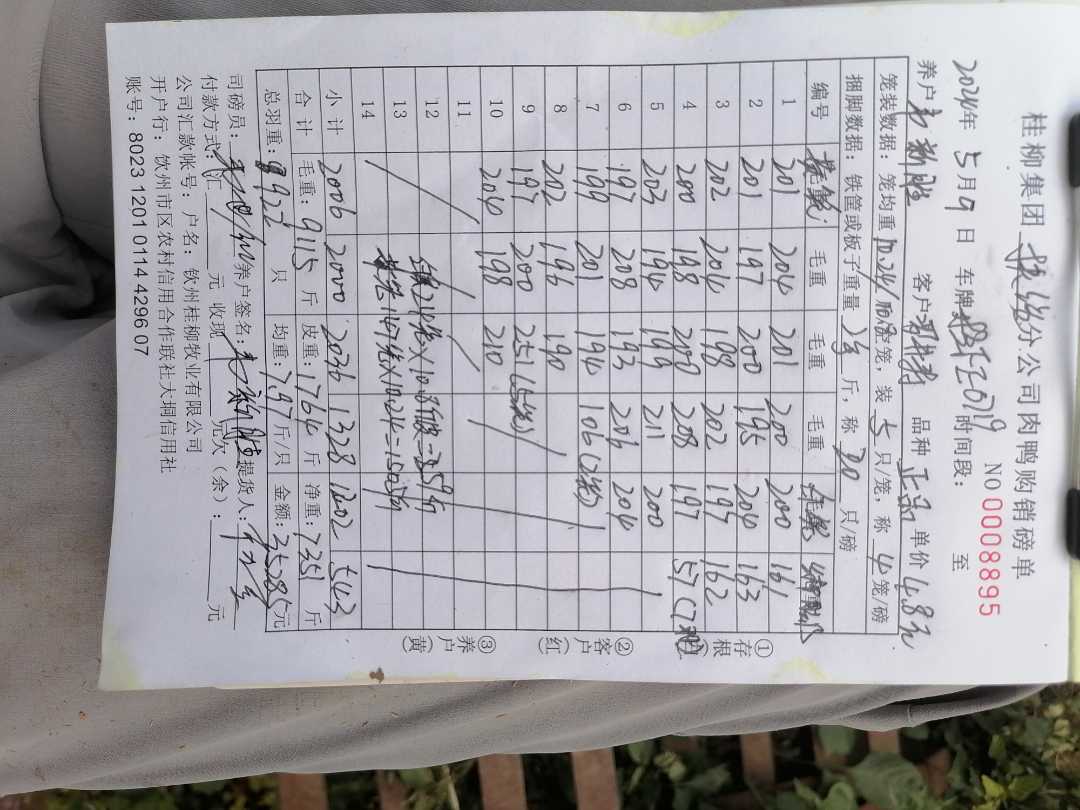 桂柳集团 分公司肉鸭购销磅单
NO 0008895
2024年 5月9日 车牌 E0719 时间段: 至
养户 新胜 客户 品种 正品 单价 4.8元
笼装数据: 笼均重 10.24 笼, 装 5 只/笼, 称 4 笼/磅
捆脚数据: 铁筐或板子重量 斤, 称 20 只/磅
编号 毛重 毛重
1 201 204 201 200 200 161
2 201 197 200 195 204 163
3 202 204 198 202 197 162
4 200 198 200 208 197 57
5 203 194 199 211 200
6 197 208 193 206 204
7 199 201 194 106 (2笼)
8 202 196 190
9 197 200 251 (5笼)
10 204 198 210
11
12
13
14
小计 2006 2000 2036 1328 1202 543
合计 毛重: 9115 斤 皮重: 1764 斤 净重: 7351 斤
总羽重: 只 均重: 7.97 斤/只 金额: 35285 元
司磅员: 养户签名: 提货人:
付款方式: 汇 元 收现 元欠(余): 元
公司汇款账号: 户名: 钦州桂柳牧业有限公司
开户行: 钦州市区农村信用合作联社大垌信用社
账号: 8023 1201 0114 4296 07
①存根
②客户(红)
③养户(黄)